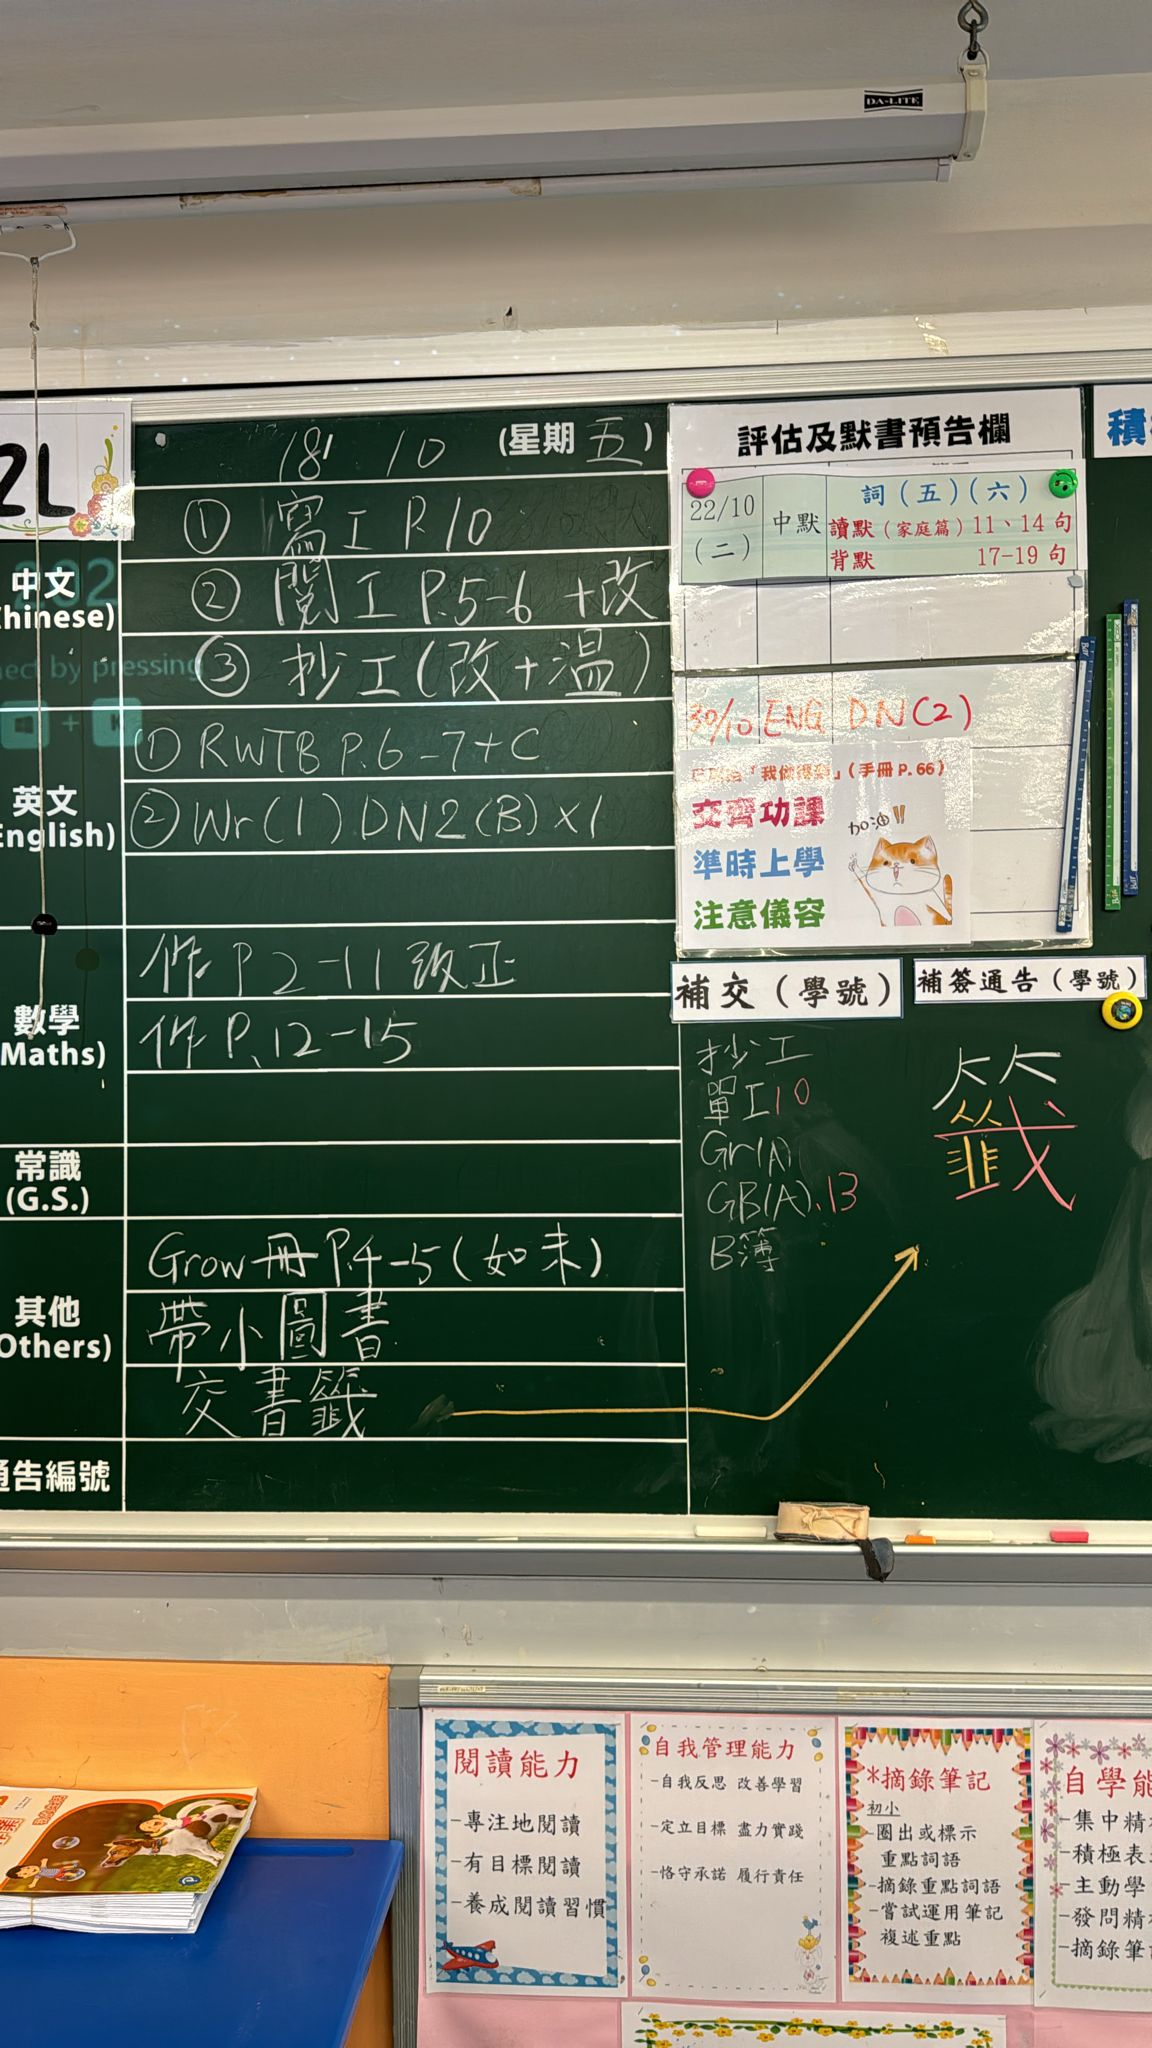 DA-LITE
2L
18 10 (星期五)
中文
(Chinese)
① 寫工 P.10
② 閱工 P.5-6 +改
③ 抄工(改+溫)
英文
(English)
① RWTB P.6-7+C
② Wr(1) DN2(B)x1
數學
(Maths)
作 P.2-11 改正
作 P.12-15
常識
(G.S.)
其他
(Others)
Grow冊 P.4-5(如未)
帶小圖書
交書籤
通告編號
評估及默書預告欄
22/10
(二)
中默
詞(五)(六)
讀默(家庭篇)11、14句
背默 17-19句
30/10 ENG DN(2)
「我做得到」(手冊 P.66)
交齊功課
準時上學
注意儀容
加油!!
補交(學號)
補簽通告(學號)
抄工
單工10
Gr(A)
GB(A).13
B簿
籤
積
閱讀能力
-專注地閱讀
-有目標閱讀
-養成閱讀習慣
自我管理能力
-自我反思 改善學習
-定立目標 盡力實踐
-恪守承諾 履行責任
*摘錄筆記
初小
-圈出或標示
重點詞語
-摘錄重點詞語
-嘗試運用筆記
複述重點
自學能
-集中精
-積極表
-主動學
-發問精
-摘錄筆